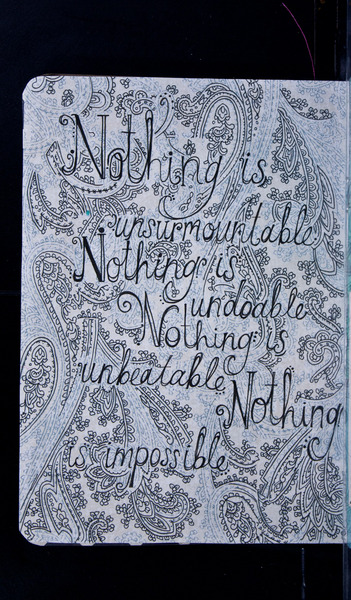 Nothing is
unsurmountable
Nothing is
undoable
Nothing is
unbeatable
Nothing
is impossible